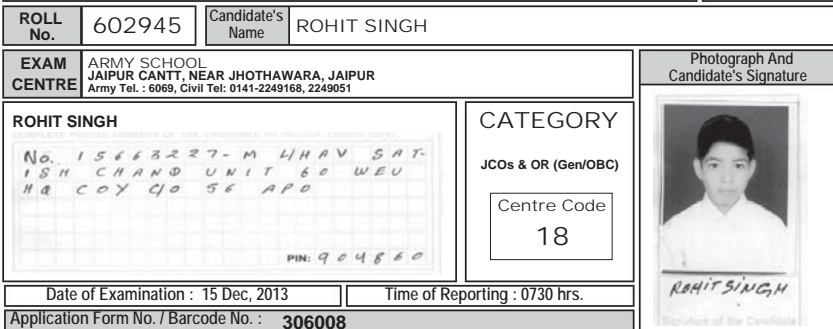 ROLL No. 602945 Candidate's Name ROHIT SINGH
EXAM CENTRE ARMY SCHOOL
JAIPUR CANTT, NEAR JHOTHAWARA, JAIPUR
Army Tel. : 6069, Civil Tel: 0141-2249168, 2249051
Photograph And
Candidate's Signature
ROHIT SINGH
No. 15663227-M L/HAV SAT-
ISH CHAND UNIT 60 WEU
HQ COY C/O 56 APO
PIN: 904860
CATEGORY
JCOs & OR (Gen/OBC)
Centre Code
18
ROHIT SINGH
Signature of the Candidate
Date of Examination : 15 Dec, 2013 Time of Reporting : 0730 hrs.
Application Form No. / Barcode No. : 306008